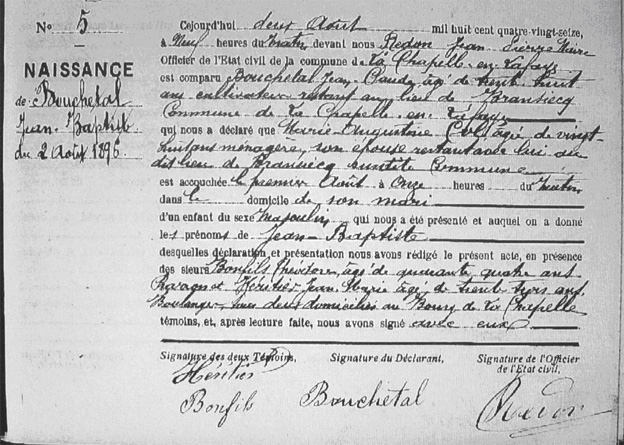 N° 5
NAISSANCE
de Bouchetal
Jean-Baptiste
du 2 Août 1896
Cejourd'hui deux Août mil huit cent quatre-vingt-seize,
à Neuf heures du matin devant nous Redon Jean Pierre Maire
Officier de l'Etat civil de la commune de La Chapelle-en-Lafaye
est comparu Bouchetal Jean Claude âgé de trent huit
ans cultivateur restant au lieu de
Commune de La Chapelle-en-Lafaye
qui nous a déclaré que Marie Augustine âgé de vingt
huit ans ménagère, son épouse restant avec lui au
dit lieu de susdite Commune
est accouchée le premier Août à Onze heures du matin
dans le domicile de son mari
d'un enfant du sexe Masculin qui nous a été présenté et auquel on a donné
les prénoms de Jean-Baptiste
desquelles déclaration et présentation nous avons rédigé le présent acte, en présence
des sieurs Bonfils âgé de quarante quatre ans
et Héritier Jean Marie âgé de trent trois ans
Boulanger, tous deux domiciliés au Bourg de La Chapelle
témoins, et, après lecture faite, nous avons signé avec eux
Signature des deux Témoins, Signature du Déclarant, Signature de l'Officier
de l'Etat civil,
Héritier
Bonfils Bouchetal Redon